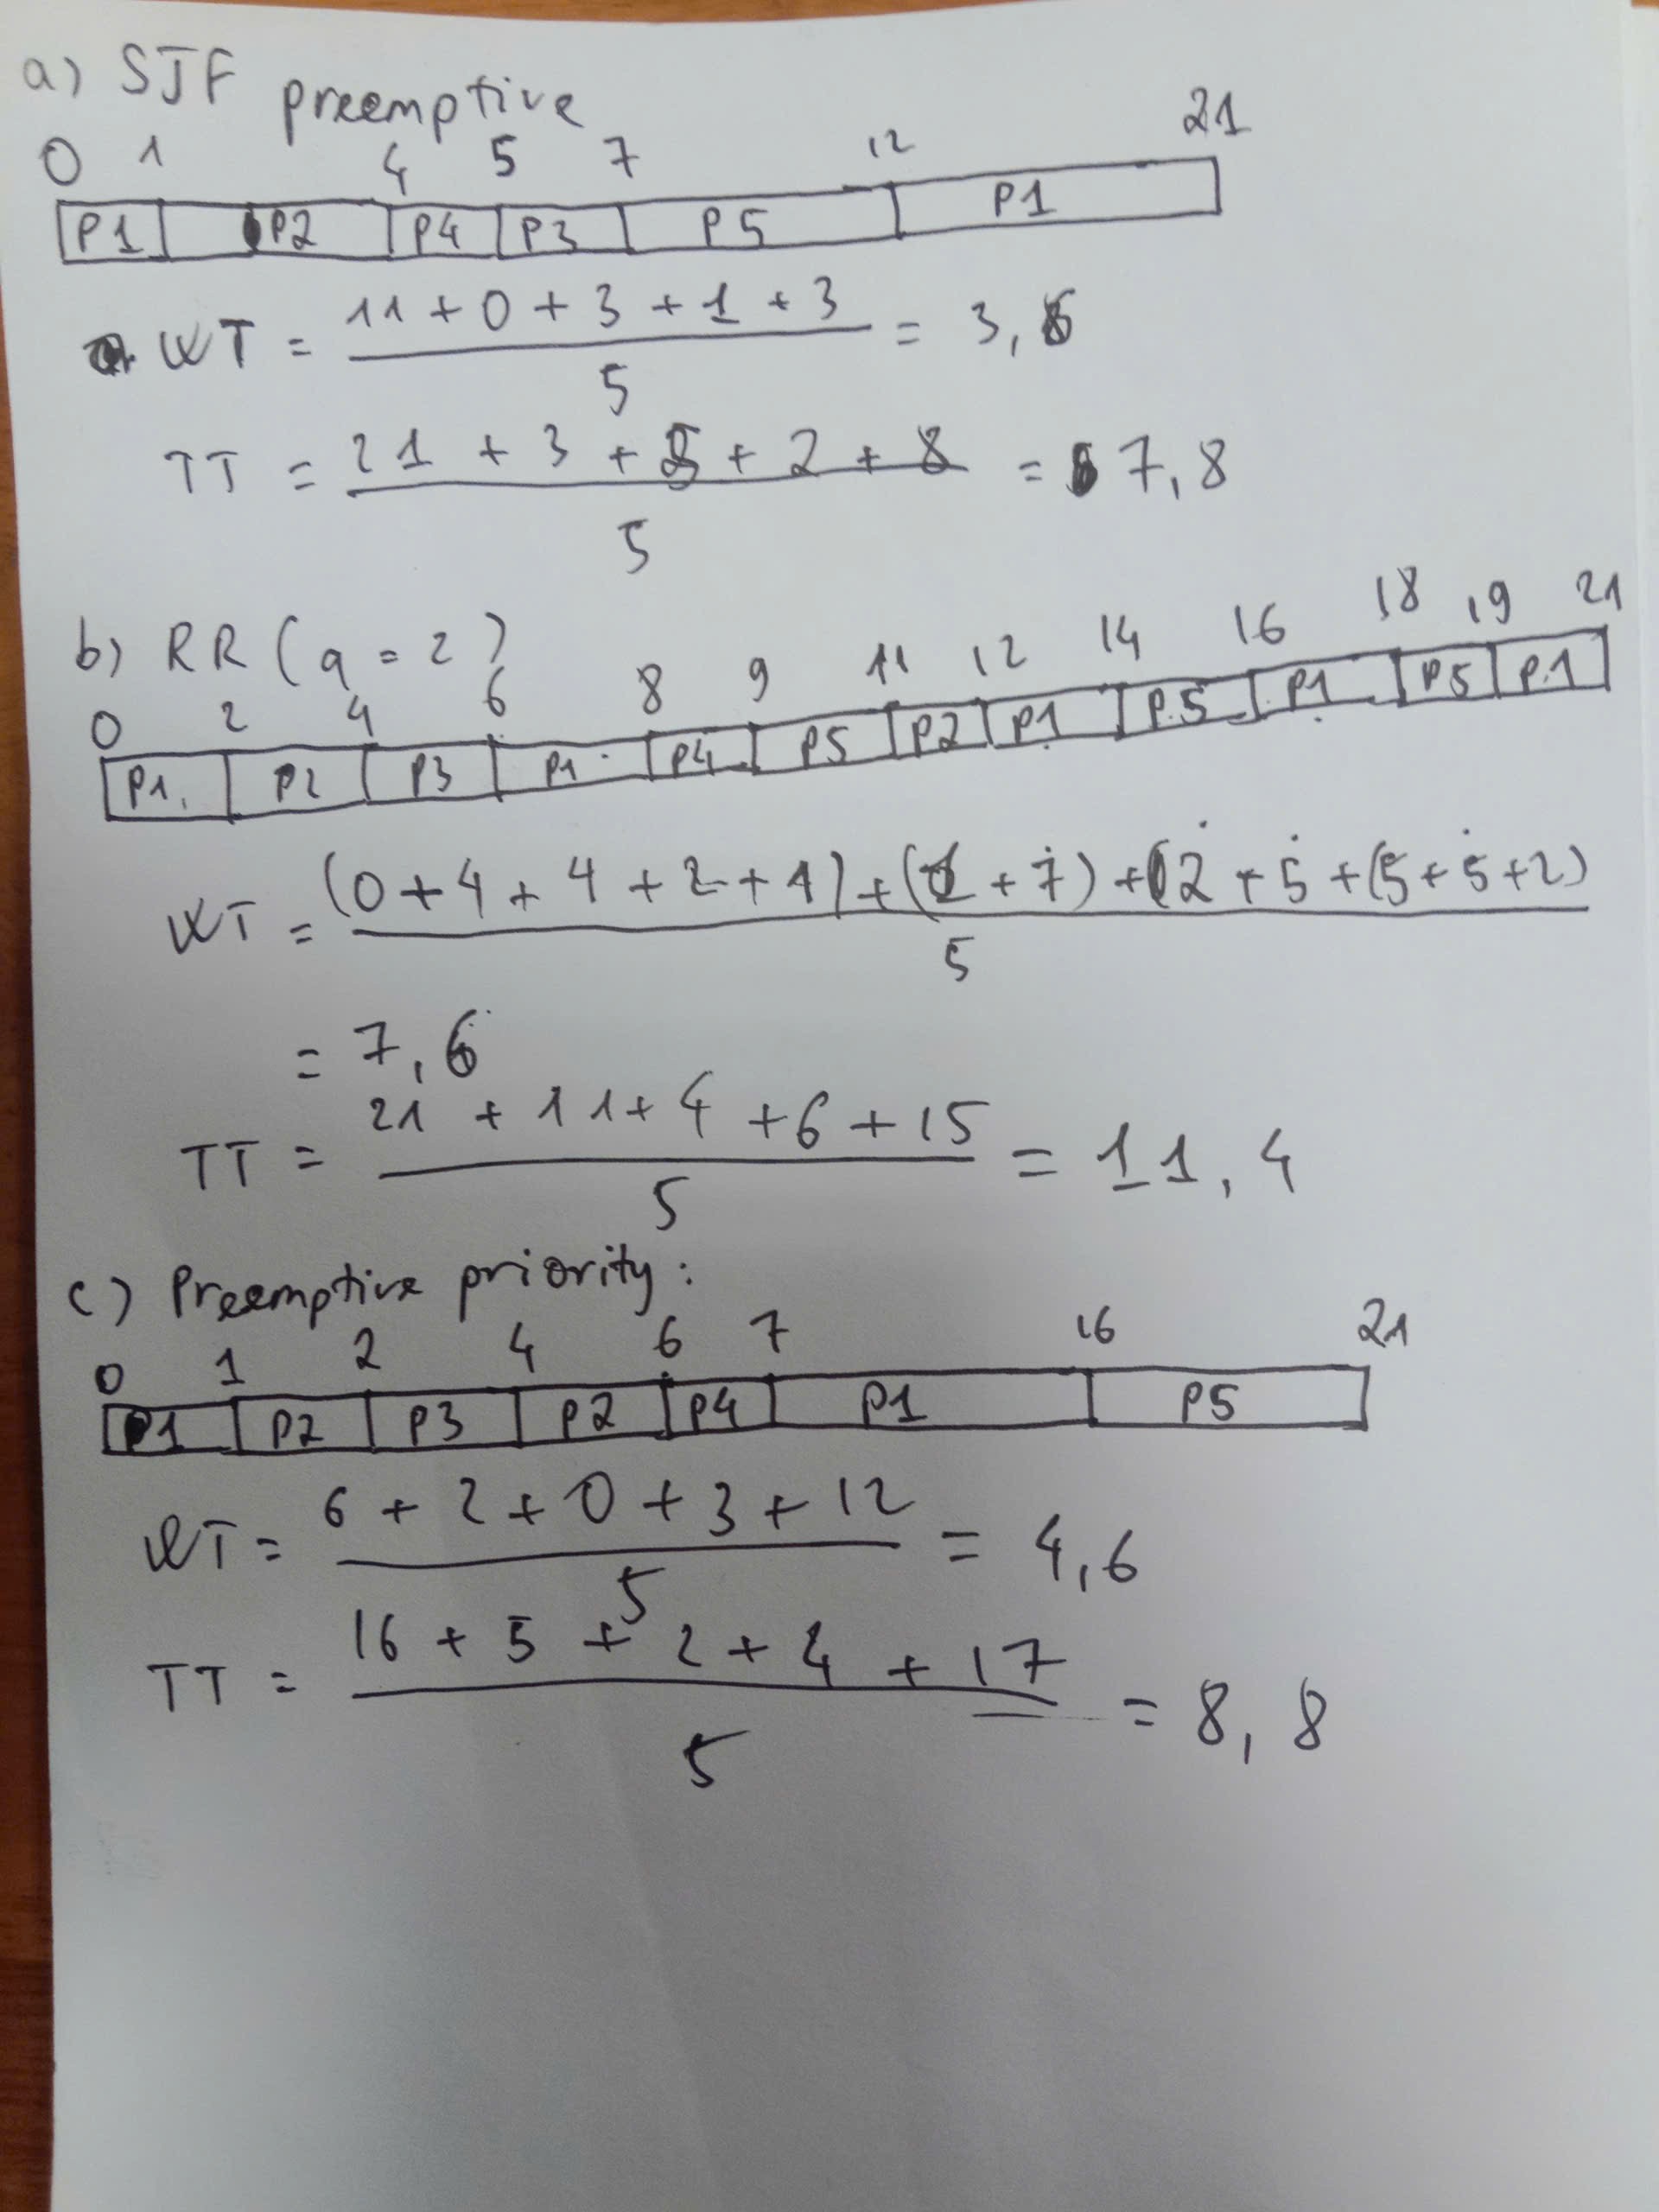 a) SJF preemptive
0 1 4 5 7 12 21
P1 P2 P4 P3 P5 P1
WT = 11 + 0 + 3 + 1 + 3 / 5 = 3,6
TT = 21 + 3 + 5 + 2 + 8 / 5 = 7,8
b) RR (q = 2)
0 2 4 6 8 9 11 12 14 16 18 19 21
P1 P2 P3 P1 P4 P5 P2 P1 P5 P1 P5 P1
WT = (0 + 4 + 4 + 2 + 1) + (1 + 7) + 2 + 5 + (5 + 5 + 2) / 5
= 7,6
TT = 21 + 11 + 4 + 6 + 15 / 5 = 11,4
c) Preemptive priority:
0 1 2 4 6 7 16 21
P1 P2 P3 P2 P4 P1 P5
WT = 6 + 2 + 0 + 3 + 12 / 5 = 4,6
TT = 16 + 5 + 2 + 4 + 17 / 5 = 8,8